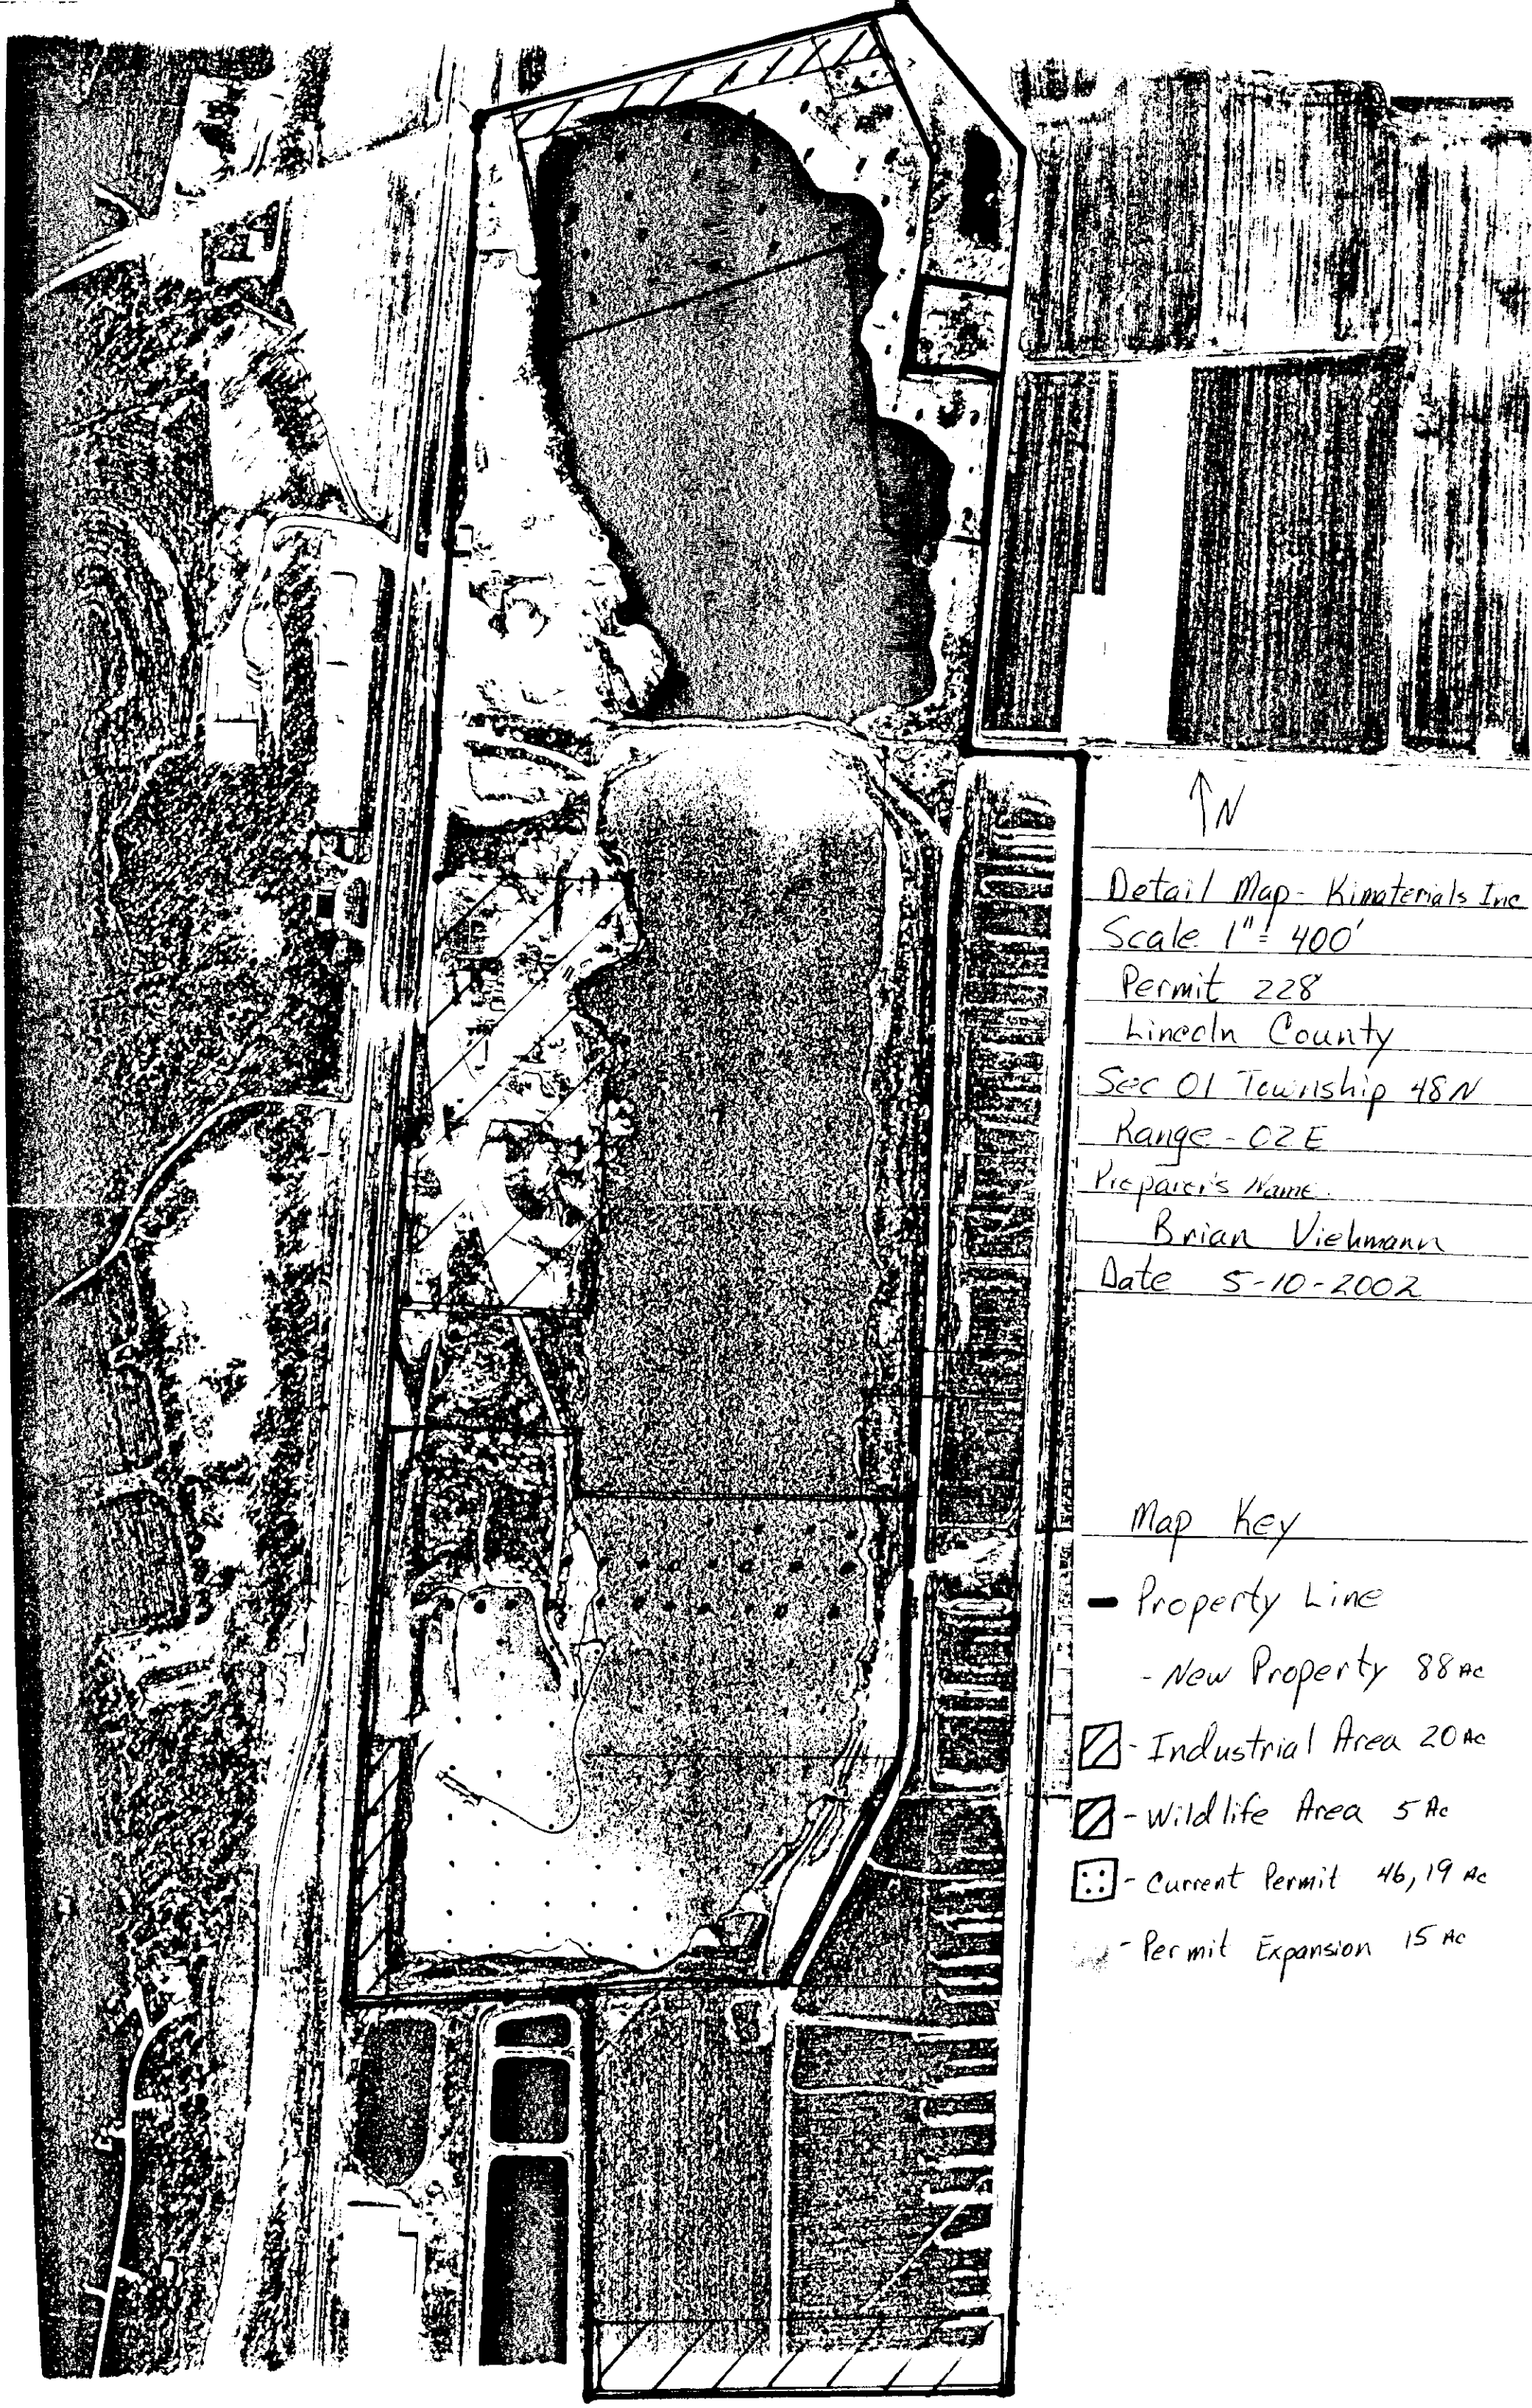 N
Detail Map - Kimaterials Inc
Scale 1" = 400'
Permit 228
Lincoln County
Sec 01 Township 48N
Range - 02E
Preparer's Name
Brian Viehmann
Date 5-10-2002
Map Key
Property Line
- New Property 88 Ac
- Industrial Area 20 Ac
- Wildlife Area 5 Ac
- Current Permit 46,19 Ac
- Permit Expansion 15 Ac